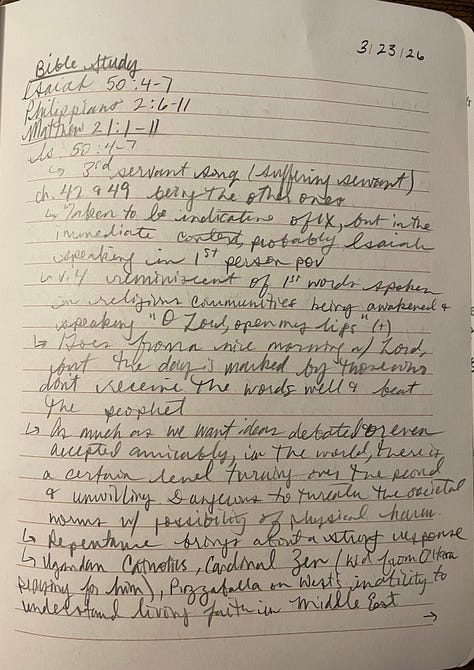 3/23/26
Bible Study
Isaiah 50:4-7
Philippians 2:6-11
Matthew 21:1-11
Is. 50:4-7
↳ 3rd servant song (suffering servant)
ch. 42 & 49 being the other ones
↳ Taken to be indicative of JX, but in the
immediate context, probably Isaiah
speaking in 1st person pov
↳ v. 4 reminiscent of 1st words spoken
in religious communities being awakened &
speaking "O Lord, open my lips" (+)
↳ Goes from a nice morning w/ Lord,
but the day is marked by those who
dont receive the words well & beat
the prophet
↳ As much as we want ideas debated or even
accepted amicably, in the world, there is
a certain level turning over the
& unwilling to the societal
norms w/ possibility of physical harm.
↳ Repentance brings about a strong response
↳ Ugandan Catholics, Cardinal Zen (kid from
praying for him), Pizzaballa on West's inability to
understand living faith in Middle East
→